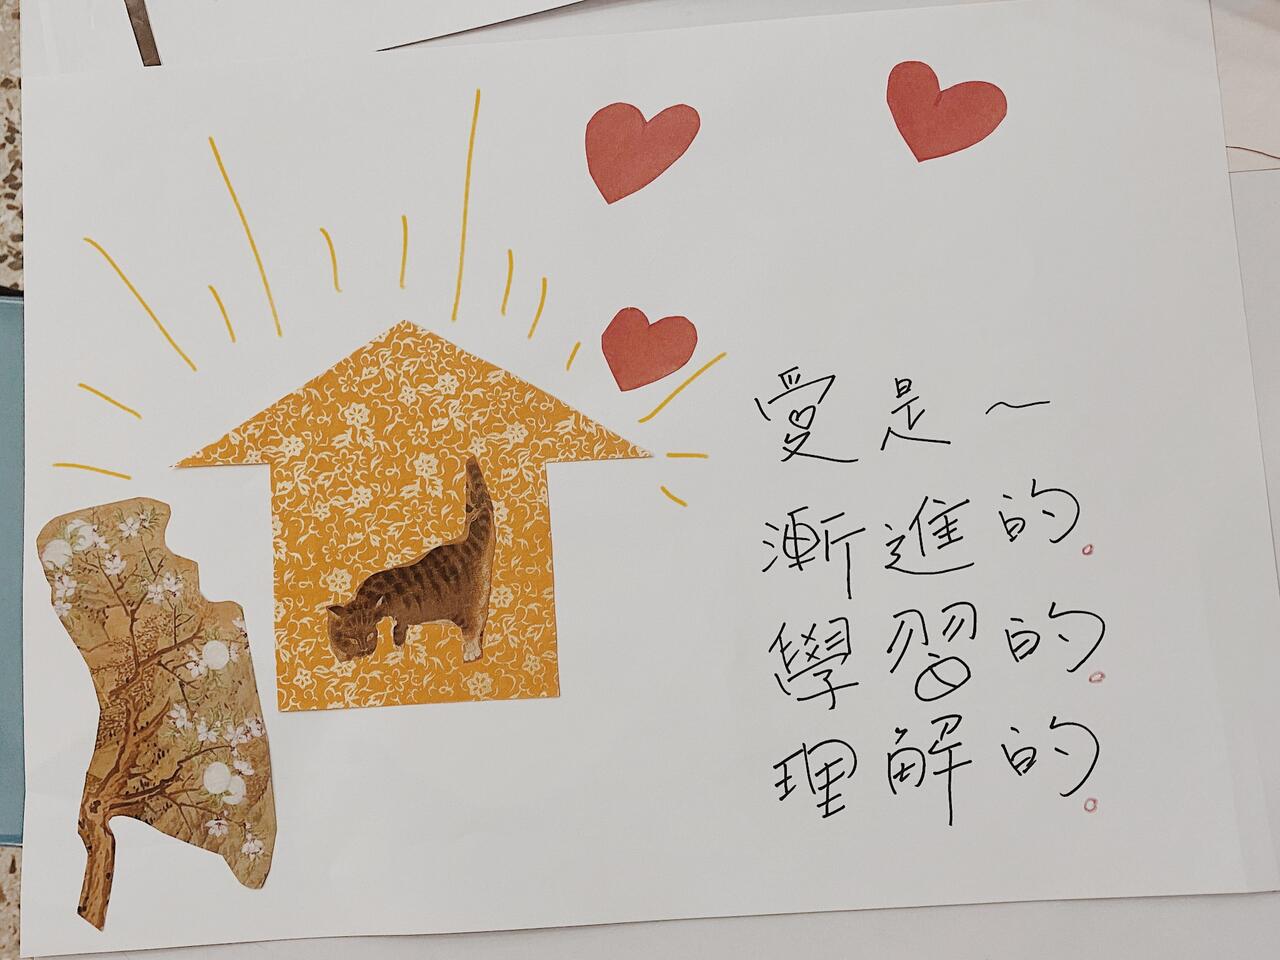 愛是～
漸進的。
學習的。
理解的。